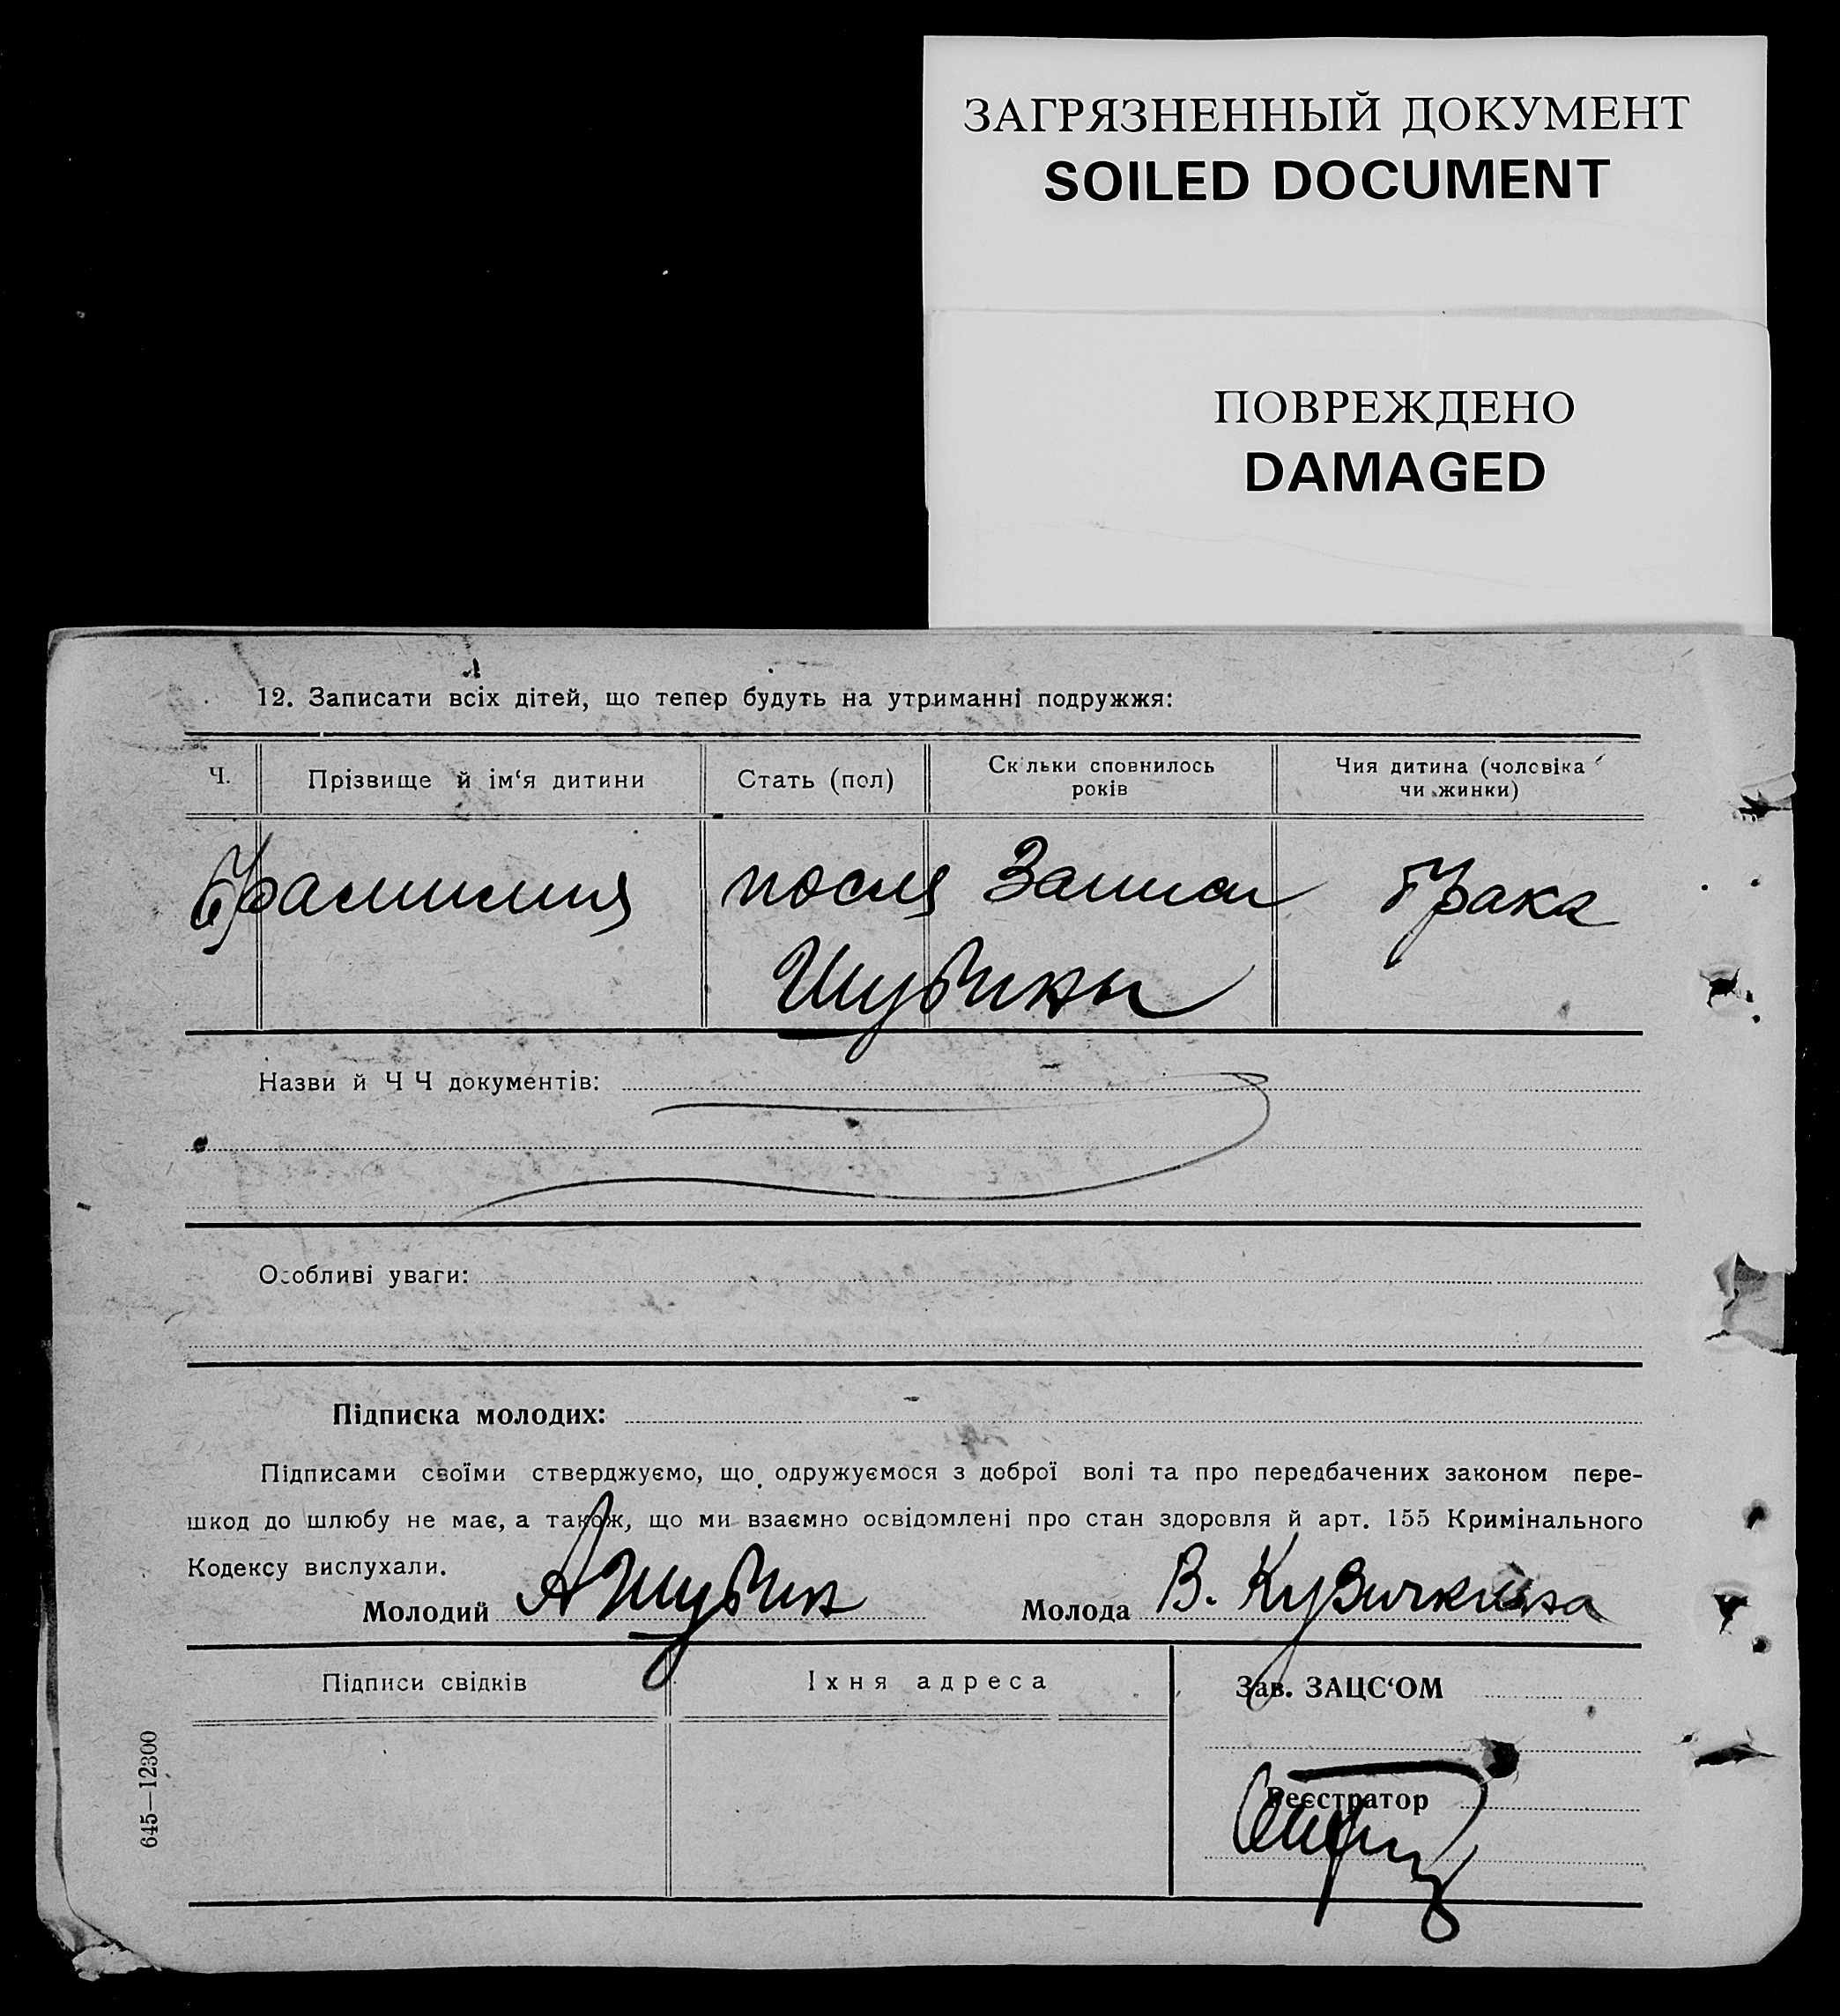 ЗАГРЯЗНЕННЫЙ ДОКУМЕНТ
SOILED DOCUMENT
ПОВРЕЖДЕНО
DAMAGED
12. Записати всіх дітей, що тепер будуть на утриманні подружжя:
Ч. Прізвище й ім‘я дитини Стать (пол) Скільки сповнилось років Чия дитина (чоловіка чи жинки)
Фамилия после Записи Брака
Шубины
Назви й Ч Ч документів:
Особливі уваги:
Підписка молодих:
Підписами своїми стверджуємо, що одружуємося з доброї волі та про передбачених законом пере-
шкод до шлюбу не має, а також, що ми взаємно освідомлені про стан здоровля й арт. 155 Кримінального
Кодексу вислухали.
Молодий АШубин Молода В. Кузичкина
Підписи свідків Їхня адреса Зав. ЗАЦС‘ОМ
Реєстратор
645—12300